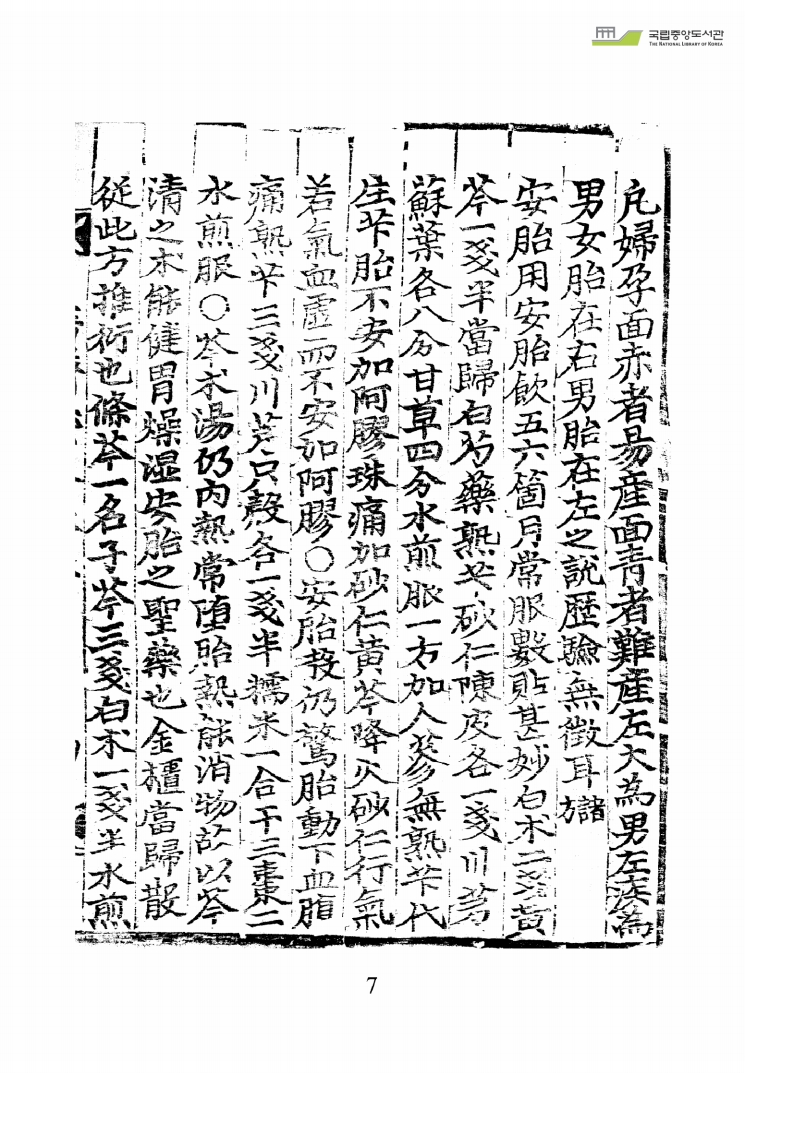 국립중앙도서관
THE NATIONAL LIBRARY OF KOREA
凡婦孕面赤者易産面靑者難産左大為男左疾為
男女胎在右男胎在左之說歷驗無徵耳諸方
安胎用安胎飮五六箇月常服數貼甚妙白朮二戔黃
芩一戔半當歸白芍藥熟芐砂仁陳皮各一戔川芎
蘇葉各八分甘草四分水煎服一方加人參無熟芐代
生芐胎不安加阿膠珠痛加砂仁黃芩降火砂仁行氣
若氣血虛而不安加阿膠○安胎散仍驚胎動下血腹
痛熟芐三戔川芎只殼各一戔半糯米一合干三棗二
水煎服○芩朮湯仍內熱常堕胎熱能消物故以芩
清之朮能健胃燥濕安胎之聖藥也金樻當歸散
從此方推衍也條芩一名子芩三戔白朮一戔半水煎
7